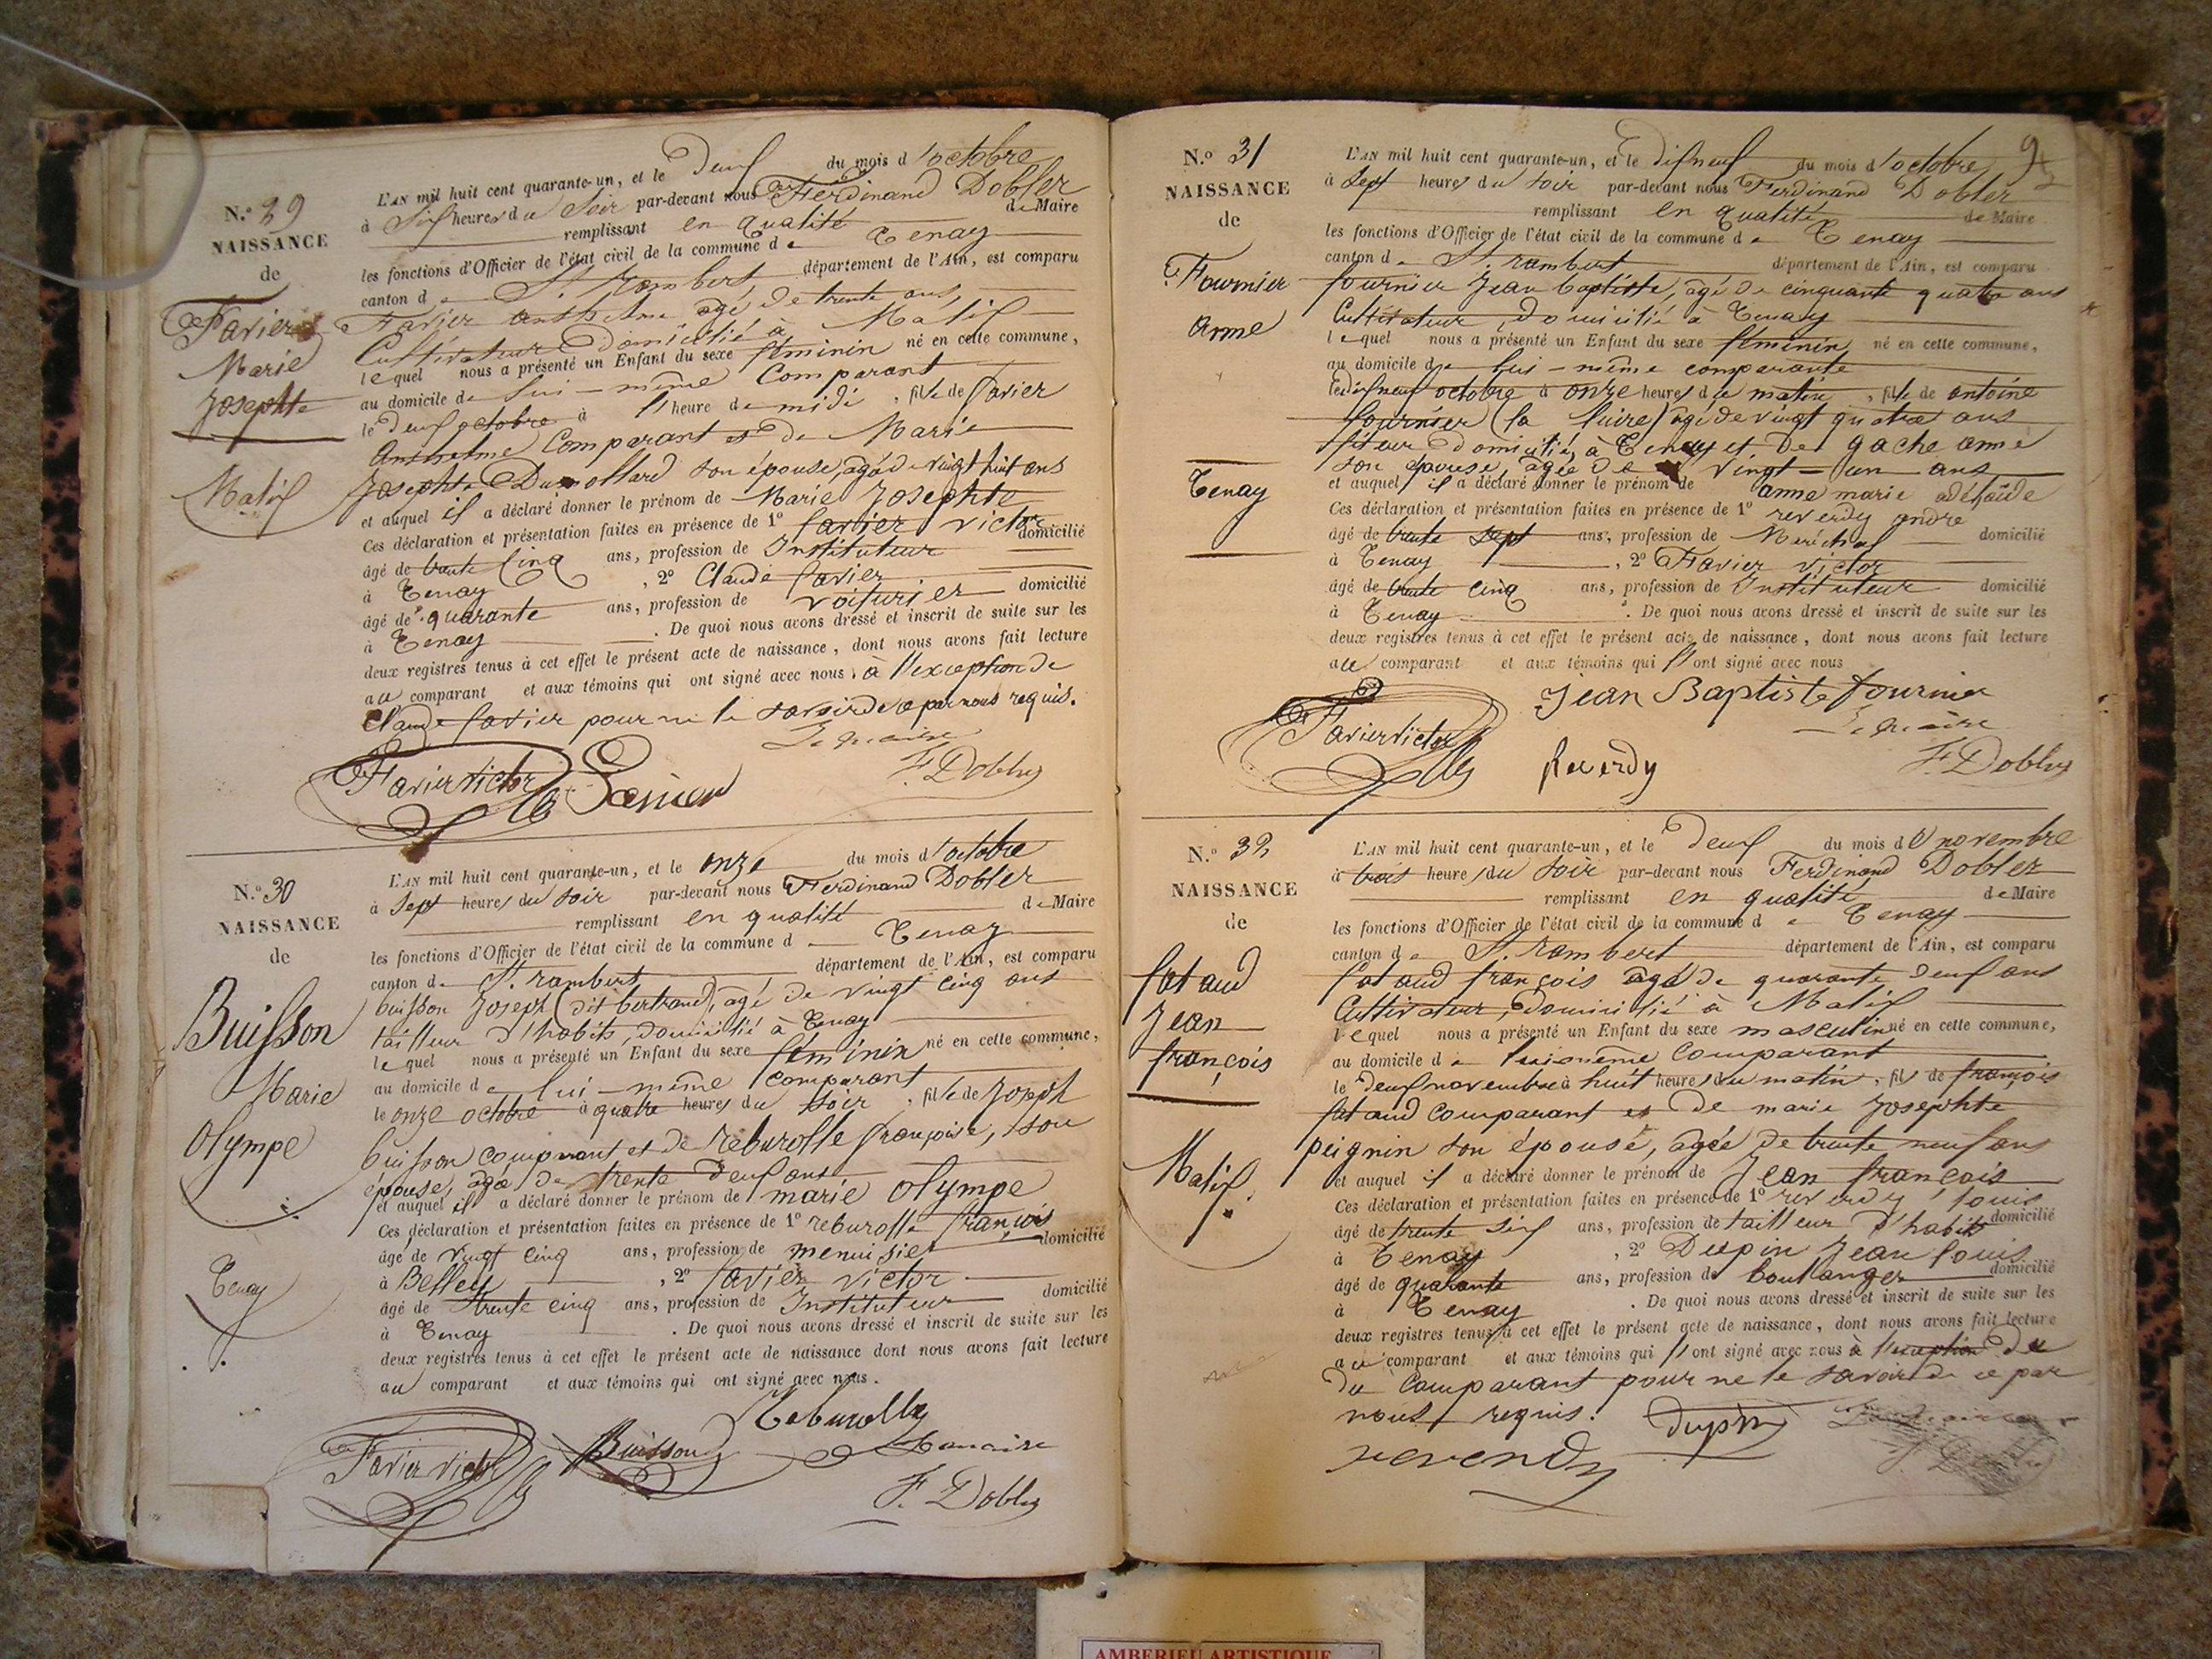 N.° 29
NAISSANCE
de
Favier
Marie
Josephte
Malix
L'AN mil huit cent quarante-un, et le Deux du mois d'octobre
à Six heures du Soir par-devant nous Ferdinand Dobler
remplissant en qualité de Maire
les fonctions d'Officier de l'état civil de la commune de Tenay
canton de St. Rambert département de l'Ain, est comparu
Favier anthelme agé de trente ans,
Cultivateur Domicilié à Malix
lequel nous a présenté un Enfant du sexe féminin né en cette commune,
au domicile de lui-même Comparant
le Deux octobre à l'heure de midi, fille de favier
Anthelme Comparant et de Marie
Josephte Dumollard son épouse, agée de vingt huit ans
et auquel il a déclaré donner le prénom de Marie Josephte
Ces déclaration et présentation faites en présence de 1° favier victor
âgé de trente Cinq ans, profession de Instituteur domicilié
à Tenay, 2° Claude favier
âgé de quarante ans, profession de voiturier domicilié
à Tenay. De quoi nous avons dressé et inscrit de suite sur les
deux registres tenus à cet effet le présent acte de naissance, dont nous avons fait lecture
au comparant et aux témoins qui ont signé avec nous à l'exception de
Claude favier pour ne le savoir de ce par nous requis.
Le maire
Favier victor
F. Dobler
N.° 30
NAISSANCE
de
Buisson
Marie
Olympe
Tenay
L'AN mil huit cent quarante-un, et le onze du mois d'octobre
à Sept heures du soir par-devant nous Ferdinand Dobler
remplissant en qualité de Maire
les fonctions d'Officier de l'état civil de la commune d Tenay
canton de St. rambert département de l'Ain, est comparu
buisson Joseph (dit bertrand), agé de vingt cinq ans
tailleur d'habits, domicilié à Tenay
lequel nous a présenté un Enfant du sexe féminin né en cette commune,
au domicile de lui-même comparant
le onze octobre à quatre heures du soir, fille de Joseph
buisson comparant et de reburolle françoise, son
épouse, agée de trente deux ans
et auquel il a déclaré donner le prénom de marie olympe
Ces déclaration et présentation faites en présence de 1° reburolle françois
âgé de vingt cinq ans, profession de menuisier domicilié
à Belley, 2° favier victor
âgé de trente cinq ans, profession de Instituteur domicilié
à Tenay. De quoi nous avons dressé et inscrit de suite sur les
deux registres tenus à cet effet le présent acte de naissance dont nous avons fait lecture
au comparant et aux témoins qui ont signé avec nous.
Reburolle
Favier victor Buisson Le maire
F. Dobler
N.° 31
NAISSANCE
de
Fournier
Anne
Tenay
L'AN mil huit cent quarante-un, et le dixneuf du mois d'octobre
à Sept heures du soir par-devant nous Ferdinand Dobler
remplissant en qualité de Maire
les fonctions d'Officier de l'état civil de la commune de Tenay
canton de St. rambert département de l'Ain, est comparu
fournier Jean baptiste, agé de cinquante quatre ans
Cultivateur, domicilié à Tenay
lequel nous a présenté un Enfant du sexe féminin né en cette commune,
au domicile de lui-même comparant
le dixneuf octobre à onze heures du matin, fille de antoine
fournier agé de vingt quatre ans
domicilié à Tenay et de gache anne
son épouse, agée de vingt-un ans
et auquel il a déclaré donner le prénom de anne marie adélaïde
Ces déclaration et présentation faites en présence de 1° reverdy andre
âgé de trente Sept ans, profession de Maréchal domicilié
à Tenay, 2° Favier victor
âgé de trente cinq ans, profession de Instituteur domicilié
à Tenay. De quoi nous avons dressé et inscrit de suite sur les
deux registres tenus à cet effet le présent acte de naissance, dont nous avons fait lecture
au comparant et aux témoins qui ont signé avec nous
Jean Baptiste fournier
Favier victor Le maire
Reverdy F. Dobler
N.° 32
NAISSANCE
de
fataud
Jean
françois
Malix
L'AN mil huit cent quarante-un, et le Deux du mois de novembre
à trois heures du soir par-devant nous Ferdinand Dobler
remplissant en qualité de Maire
les fonctions d'Officier de l'état civil de la commune de Tenay
canton de St. Rambert département de l'Ain, est comparu
fataud françois agé de quarante deux ans
Cultivateur, domicilié à Malix
lequel nous a présenté un Enfant du sexe masculin né en cette commune,
au domicile de lui même comparant
le deux novembre à huit heures du matin, fils de françois
fataud comparant et de marie Josephte
peignin son épouse, agée de trente neuf ans
et auquel il a déclaré donner le prénom de Jean françois
Ces déclaration et présentation faites en présence de 1° reverdy louis
âgé de trente six ans, profession de tailleur d'habits domicilié
à Tenay, 2° Dupin Jean louis
âgé de quarante ans, profession de boulanger domicilié
à Tenay. De quoi nous avons dressé et inscrit de suite sur les
deux registres tenus à cet effet le présent acte de naissance, dont nous avons fait lecture
au comparant et aux témoins qui ont signé avec nous à l'exception du
du Comparant pour ne le savoir de ce par
nous requis. dupin
reverdy
AMBERIEU ARTISTIQUE